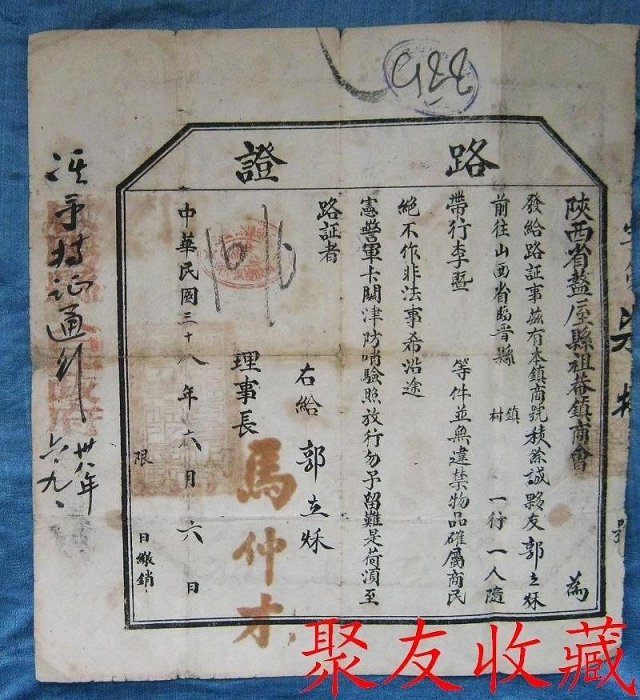 路證
陝西省盩厔縣祖菴鎮商會 為
發給路証事茲有本鎮商號積餘誠夥友郭立秌
前往山西省臨晉縣 鎮村 一行一人隨
帶行李壹 等件並無違禁物品確屬商民
絕不作非法事希沿途
憲警軍卡關津防哨驗照放行勿予留難是荷須至
路証者
右給 郭立秌
理事長 馬仲才
中華民國三十八年六月六日
限 日繳銷
准予持証通行
卅八年
六.九.
聚友收藏